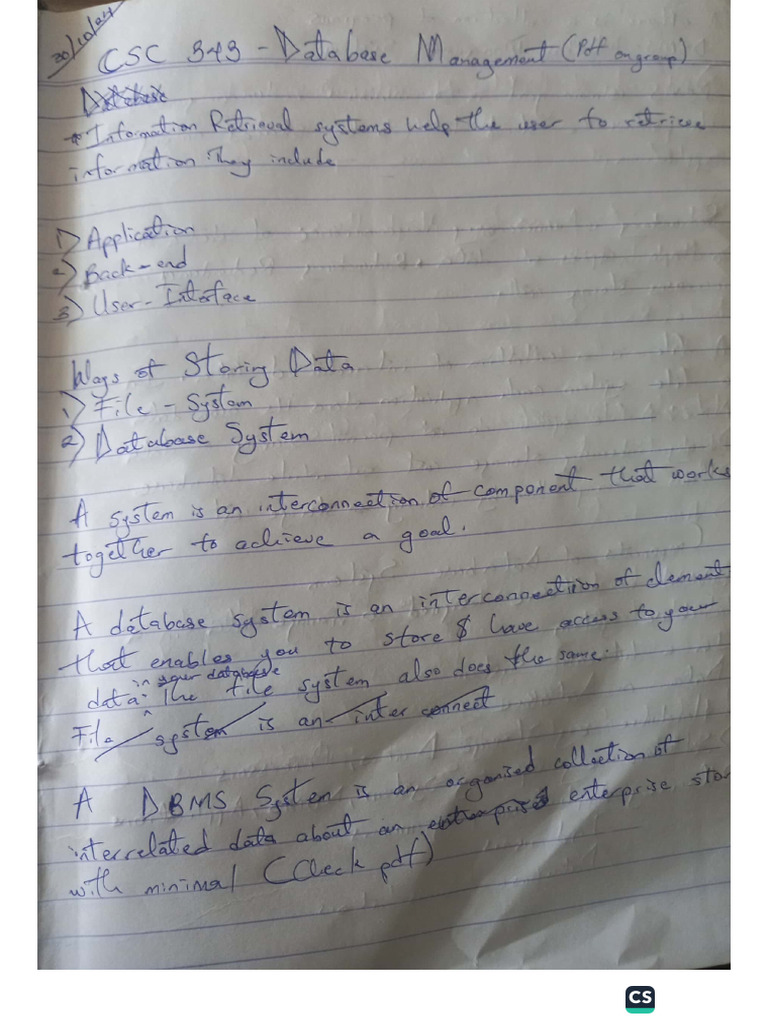 30/10/24
CSC 343 - Database Management (Pdf on group)
Database
* Information Retrieval systems help the user to retrieve
information They include
1) Application
2) Back-end
3) User-Interface
Ways of Storing Data
1) File - System
2) Database System
A system is an interconnection of component that works
together to achieve a goal.
A database system is an interconnection of element
that enables you to store & have access to your
in your database
data. The file system also does the same.
File system is an inter connect
A DBMS System is an organised collection of
interrelated data about an enterprise stor
with minimal (Check pdf)
CS